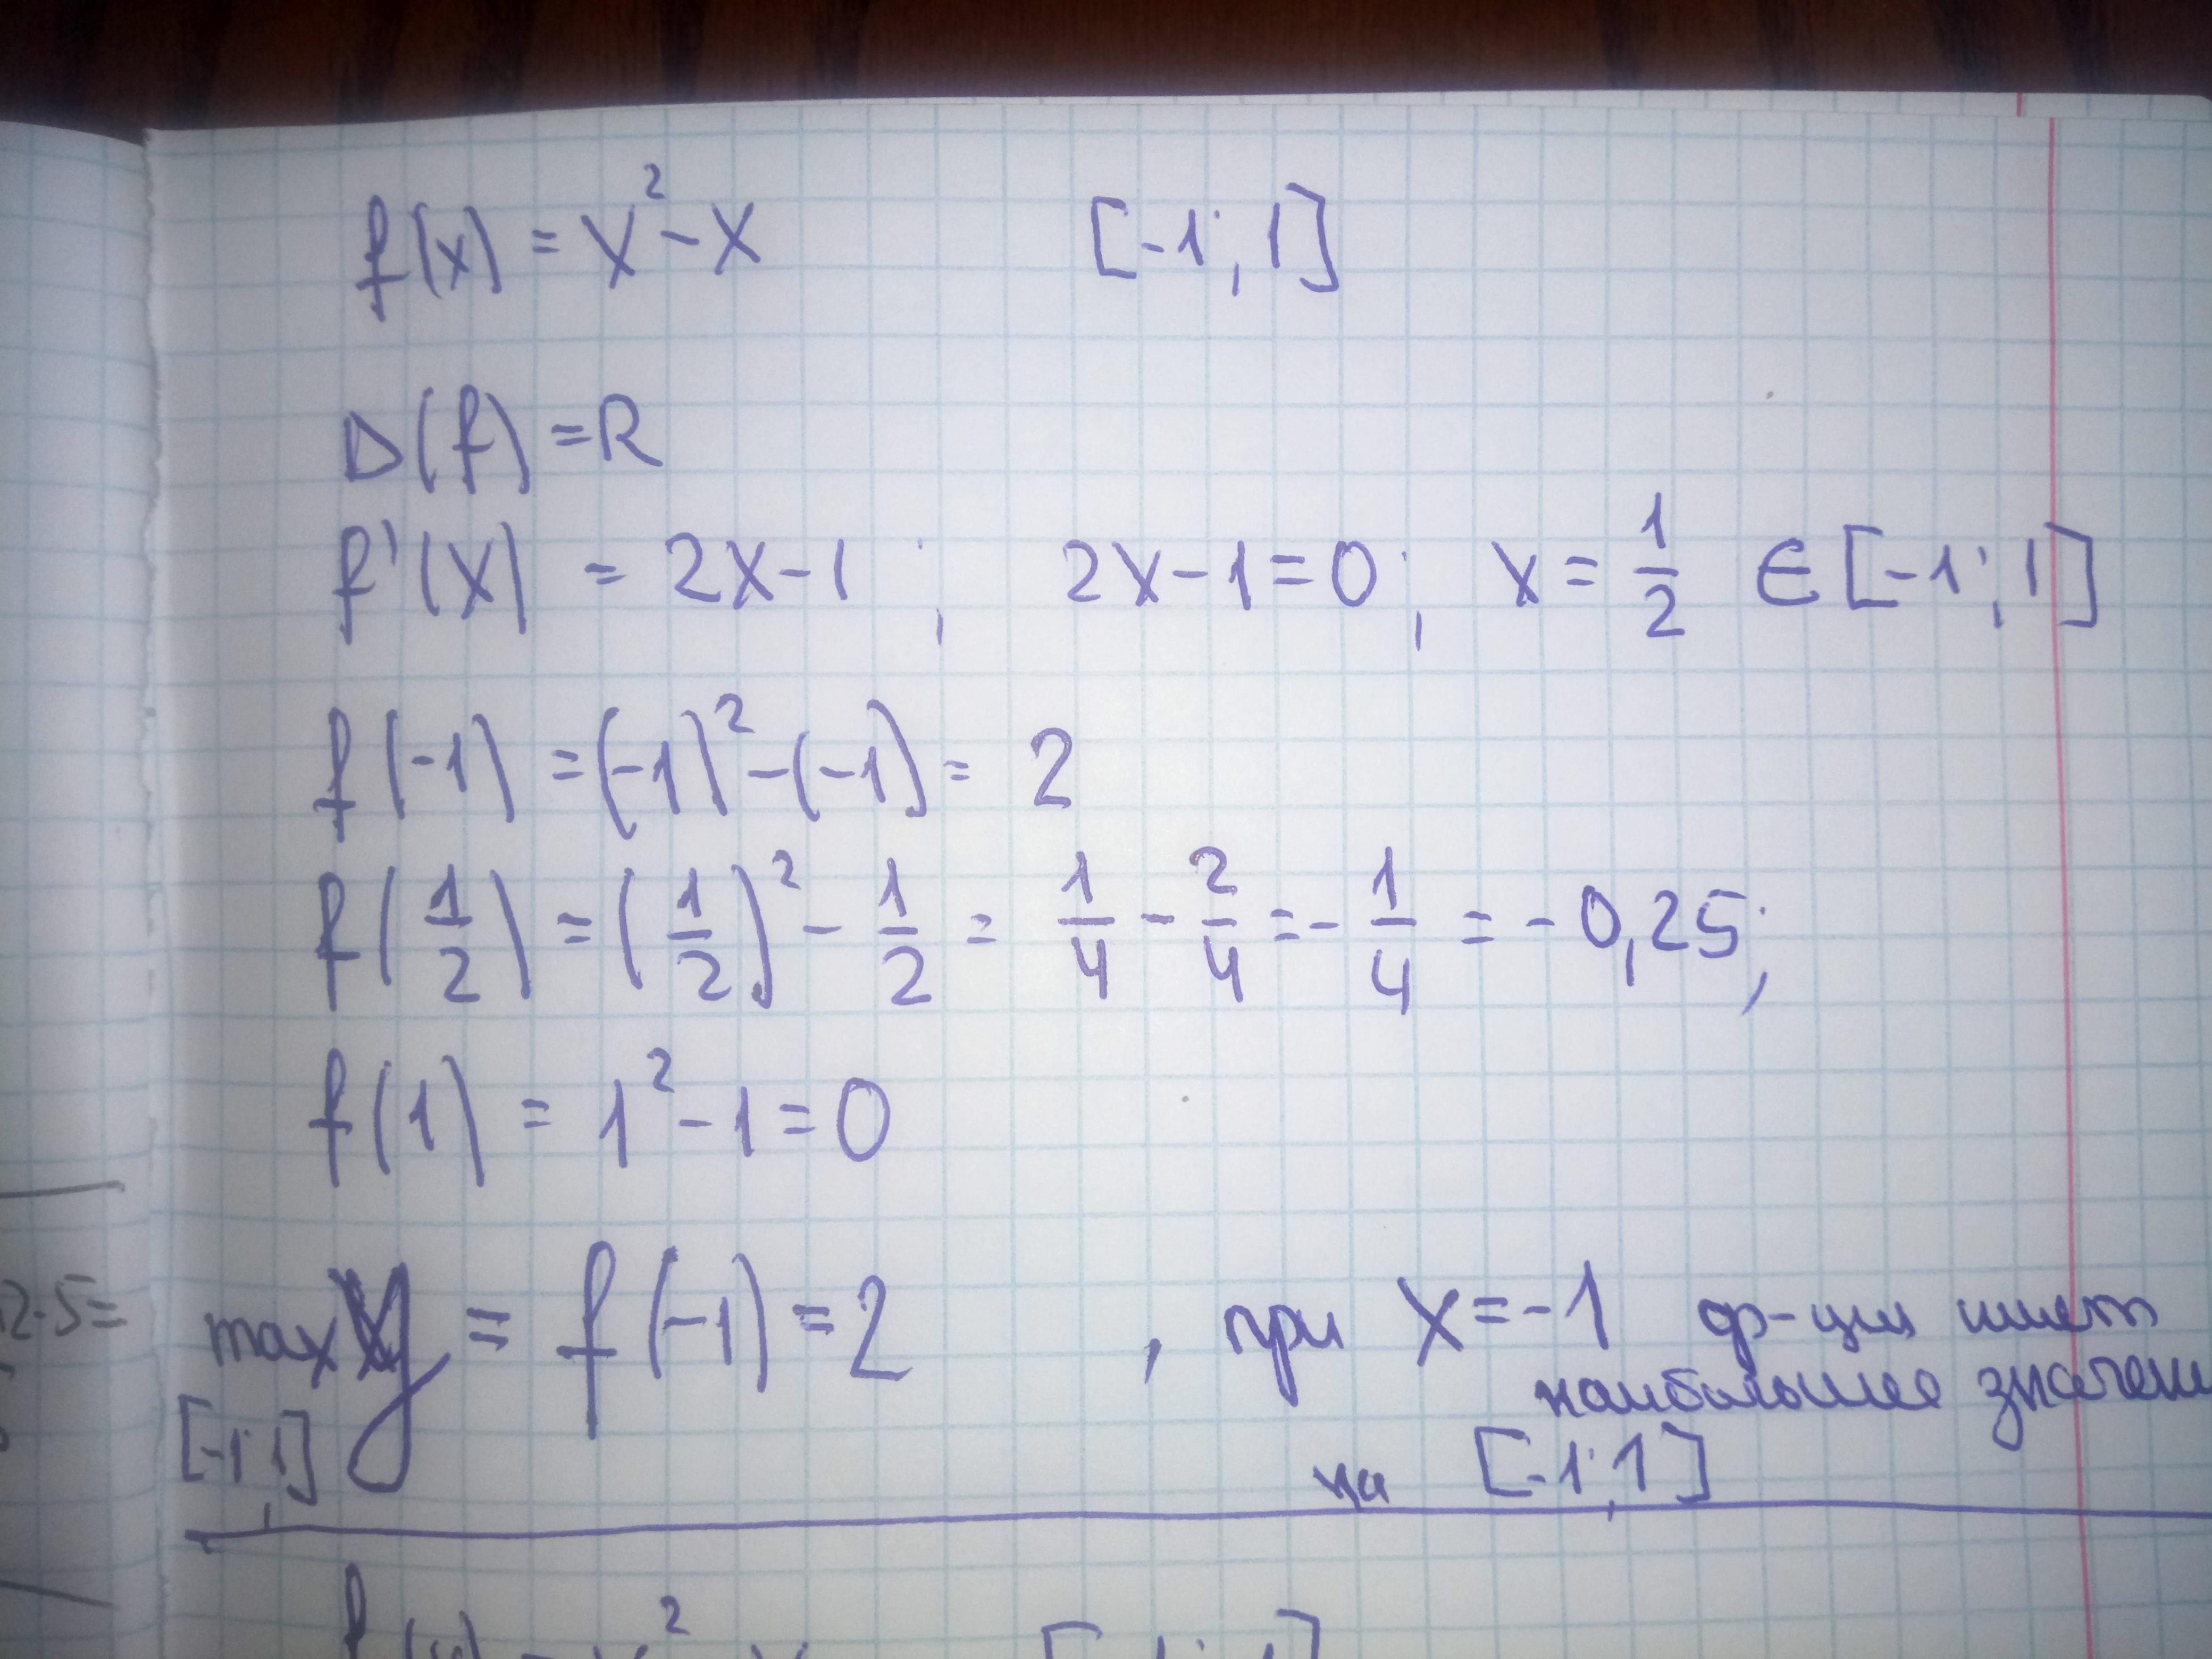 f(x) = x² - x [-1; 1]
D(f) = R
f'(x) = 2x - 1 ; 2x - 1 = 0 ; x = 1/2 ∈ [-1; 1]
f(-1) = (-1)² - (-1) = 2
f(1/2) = (1/2)² - 1/2 = 1/4 - 2/4 = - 1/4 = - 0,25;
f(1) = 1² - 1 = 0
max y = f(-1) = 2 , при x = -1 ф-ция имеет
наибольшее значени
[-1; 1] на [-1; 1]
2·5=